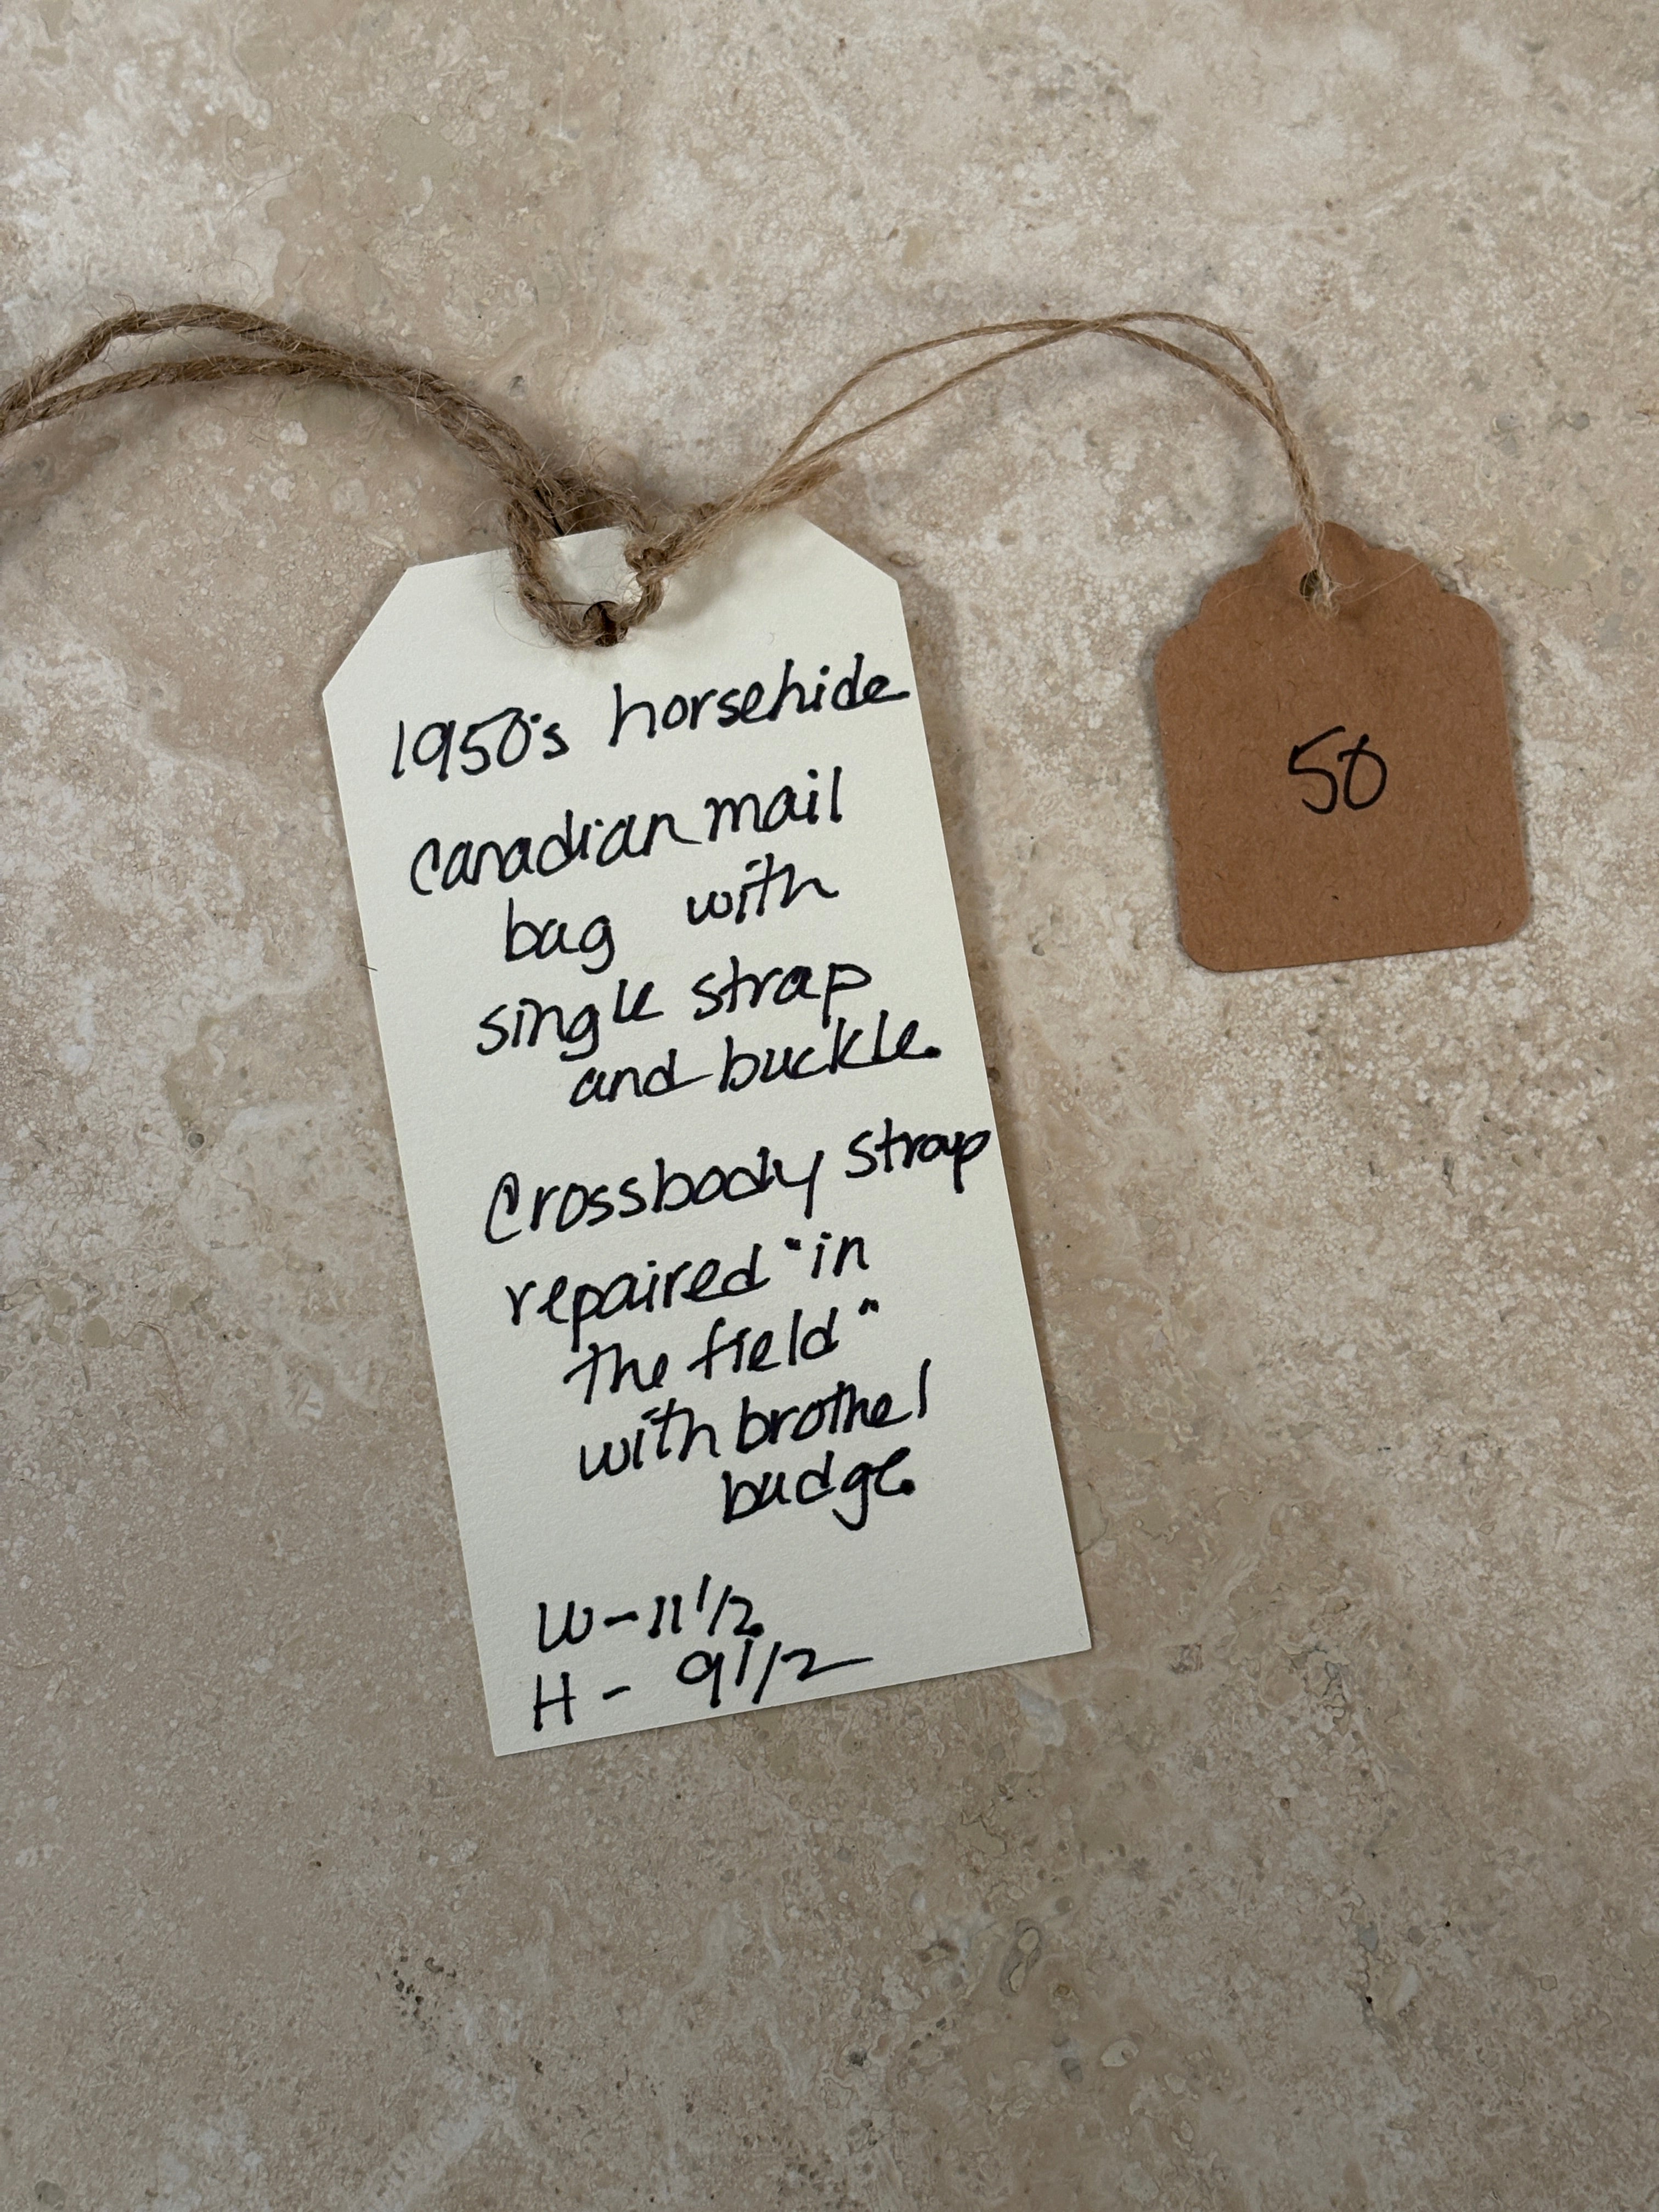 1950's horsehide
Canadian mail
bag with
single strap
and buckle.
Crossbody strap
repaired "in
the field"
with brothel
badge.
W-11 1/2
H- 9 1/2
50